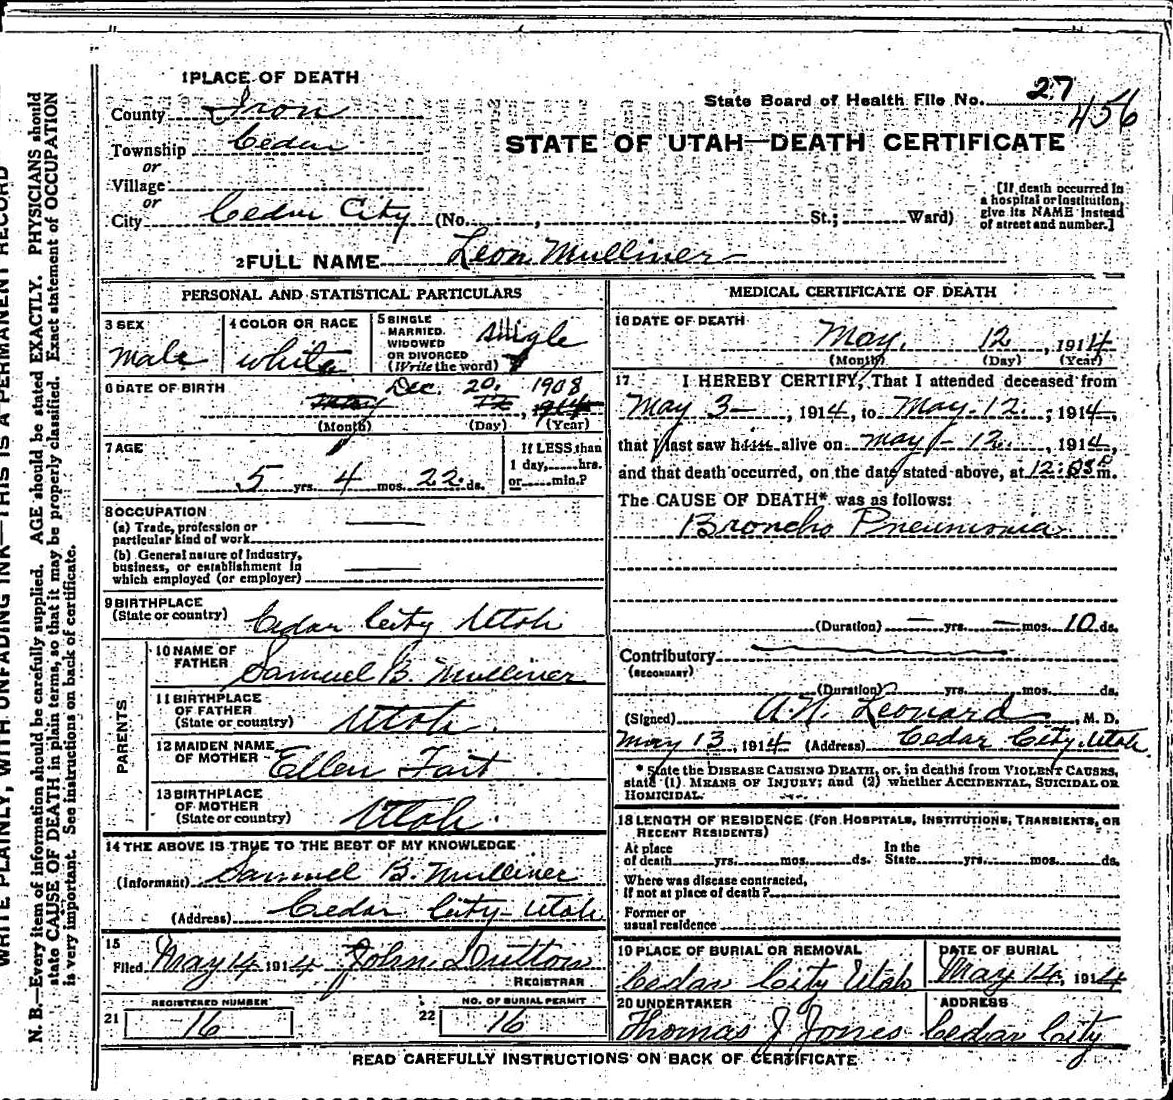 WRITE PLAINLY, WITH UNFADING INK—THIS IS A PERMANENT RECORD
N. B.—Every item of information should be carefully supplied. AGE should be stated EXACTLY. PHYSICIANS should
state CAUSE OF DEATH in plain terms, so that it may be properly classified. Exact statement of OCCUPATION
is very important. See instructions on back of certificate.
1 PLACE OF DEATH
County Iron
Township Cedar
or
Village
or
City Cedar City (No. , St.; Ward)
State Board of Health File No. 27
456
STATE OF UTAH—DEATH CERTIFICATE
[If death occurred in
a hospital or institution,
give its NAME instead
of street and number.]
2 FULL NAME Leon Mulliner
PERSONAL AND STATISTICAL PARTICULARS
3 SEX
Male
4 COLOR OR RACE
White
5 SINGLE
MARRIED,
WIDOWED
OR DIVORCED
(Write the word)
single
6 DATE OF BIRTH
Dec. 20. 1908
May 12, 1914
(Month) (Day) (Year)
7 AGE
5 yrs. 4 mos. 22 ds.
If LESS than
1 day, hrs.
or min.?
8 OCCUPATION
(a) Trade, profession or
particular kind of work
(b) General nature of Industry,
business, or establishment in
which employed (or employer)
9 BIRTHPLACE
(State or country)
Cedar City Utah
PARENTS
10 NAME OF
FATHER
Samuel B. Mulliner
11 BIRTHPLACE
OF FATHER
(State or country)
Utah.
12 MAIDEN NAME
OF MOTHER
Ellen Tait
13 BIRTHPLACE
OF MOTHER
(State or country)
Utah.
14 THE ABOVE IS TRUE TO THE BEST OF MY KNOWLEDGE
(Informant) Samuel B. Mulliner
(Address) Cedar City Utah
15
Filed May 14 1914 John Dutton
REGISTRAR
REGISTERED NUMBER
21 16
NO. OF BURIAL PERMIT
22 16
MEDICAL CERTIFICATE OF DEATH
16 DATE OF DEATH
May. 12, 1914
(Month) (Day) (Year)
17 I HEREBY CERTIFY, That I attended deceased from
May 3, 1914, to May. 12., 1914,
that I last saw him alive on May 12., 1914,
and that death occurred, on the date stated above, at m.
The CAUSE OF DEATH* was as follows:
Broncho Pneumonia
(Duration) — yrs. — mos. 10 ds.
Contributory
(SECONDARY)
(Duration) yrs. mos. ds.
(Signed) A.N. Leonard, M. D.
May 13, 1914 (Address) Cedar City, Utah
* State the DISEASE CAUSING DEATH, or, in deaths from VIOLENT CAUSES,
state (1) MEANS OF INJURY; and (2) whether ACCIDENTAL, SUICIDAL OR
HOMICIDAL.
18 LENGTH OF RESIDENCE (FOR HOSPITALS, INSTITUTIONS, TRANSIENTS, OR
RECENT RESIDENTS)
At place
of death yrs. mos. ds.
In the
State yrs. mos. ds.
Where was disease contracted,
if not at place of death?
Former or
usual residence
19 PLACE OF BURIAL OR REMOVAL
Cedar City Utah
DATE OF BURIAL
May 14, 1914
20 UNDERTAKER
Thomas J Jones
ADDRESS
Cedar City
READ CAREFULLY INSTRUCTIONS ON BACK OF CERTIFICATE